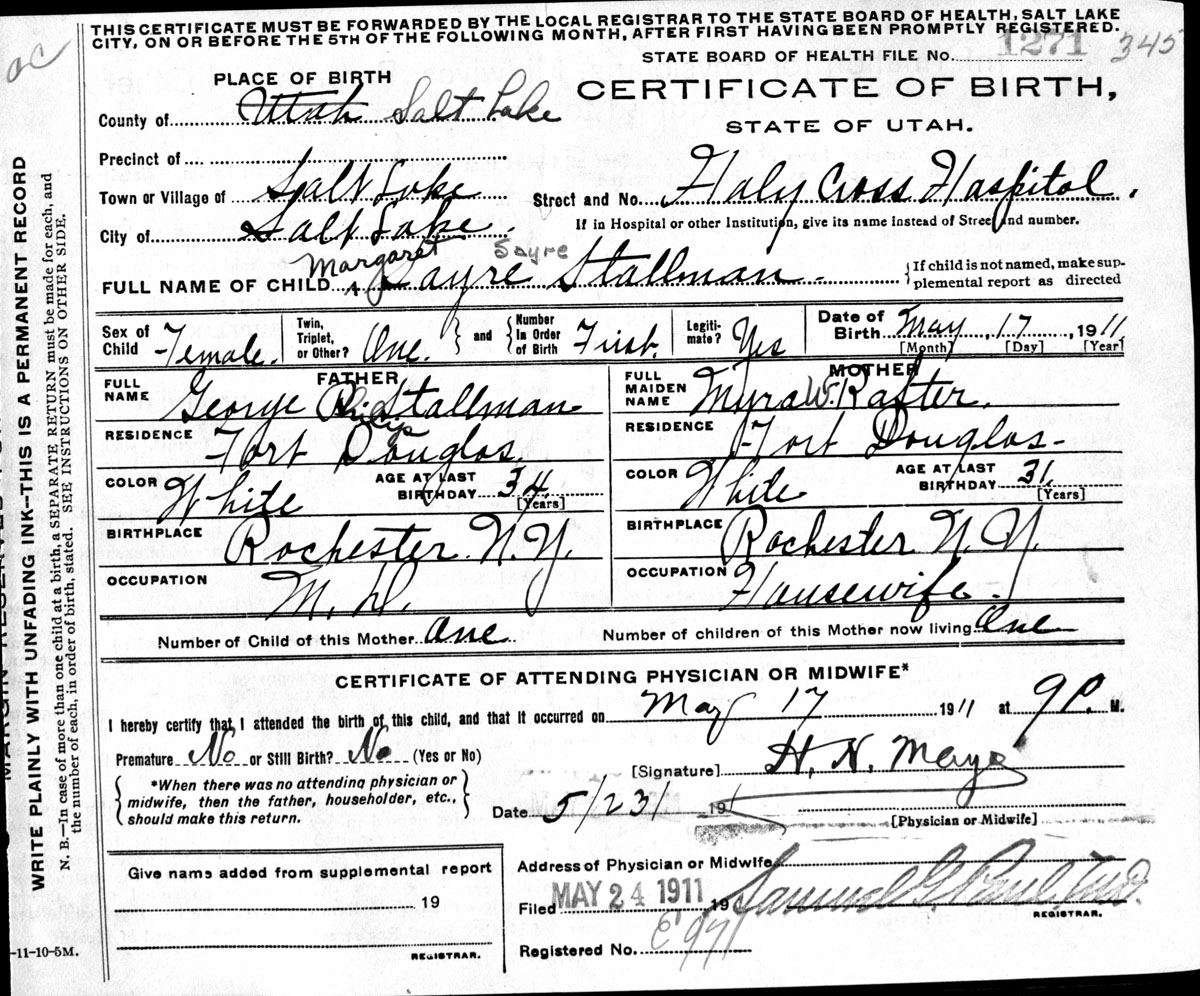 THIS CERTIFICATE MUST BE FORWARDED BY THE LOCAL REGISTRAR TO THE STATE BOARD OF HEALTH, SALT LAKE
CITY, ON OR BEFORE THE 5TH OF THE FOLLOWING MONTH, AFTER FIRST HAVING BEEN PROMPTLY REGISTERED.
STATE BOARD OF HEALTH FILE No. 1271 345
PLACE OF BIRTH
CERTIFICATE OF BIRTH,
STATE OF UTAH.
County of Utah Salt Lake
Precinct of
Town or Village of Salt Lake
Street and No. Holy Cross Hospital.
If in Hospital or other Institution, give its name instead of Street and number.
City of Salt Lake.
Margaret Sayre
FULL NAME OF CHILD Sayre Stallman
If child is not named, make sup-
plemental report as directed
Sex of Child Female.
Twin, Triplet, or Other? One.
and
Number In Order of Birth First.
Legiti- mate? Yes
Date of Birth May 17, 1911
[Month] [Day] [Year]
FATHER
FULL NAME George Stallman
RESIDENCE Fort Douglas.
COLOR White
AGE AT LAST BIRTHDAY 34
[Years]
BIRTHPLACE Rochester N.Y.
OCCUPATION M.D.
MOTHER
FULL MAIDEN NAME Myra W. Rafter.
RESIDENCE Fort Douglas-
COLOR White
AGE AT LAST BIRTHDAY 31.
[Years]
BIRTHPLACE Rochester N.Y.
OCCUPATION Housewife.
Number of Child of this Mother One
Number of children of this Mother now living One
CERTIFICATE OF ATTENDING PHYSICIAN OR MIDWIFE*
I hereby certify that I attended the birth of this child, and that it occurred on May 17 1911 at 9 P. M.
Premature No or Still Birth? No (Yes or No)
[Signature] H. N. Mayo
*When there was no attending physician or
midwife, then the father, householder, etc.,
should make this return.
Date 5/23/ 191
[Physician or Midwife]
Give name added from supplemental report
19
REGISTRAR.
Address of Physician or Midwife
Filed MAY 24 1911 19 Samuel G. Paul, M.D.
REGISTRAR.
Registered No. E 971
-11-10-5M.
WRITE PLAINLY WITH UNFADING INK—THIS IS A PERMANENT RECORD
N. B.—In case of more than one child at a birth, a SEPARATE RETURN must be made for each, and
the number of each, in order of birth, stated. SEE INSTRUCTIONS ON OTHER SIDE.